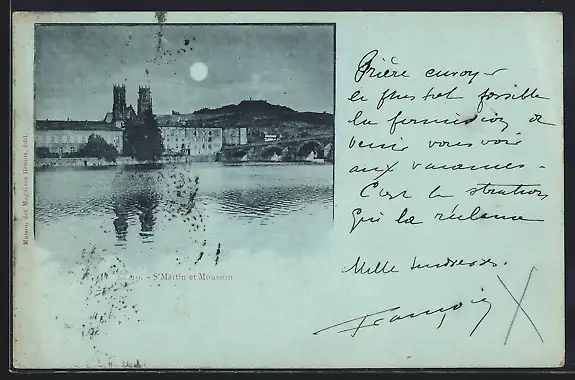 Prière envoyer
le plus tôt possible
la permission de
venir vous voir
aux vacances -
C'est la
qui la réclame
Mille tendresses.
François
19. - St Martin et Mousson
Maison des Magasins Réunis, édit.